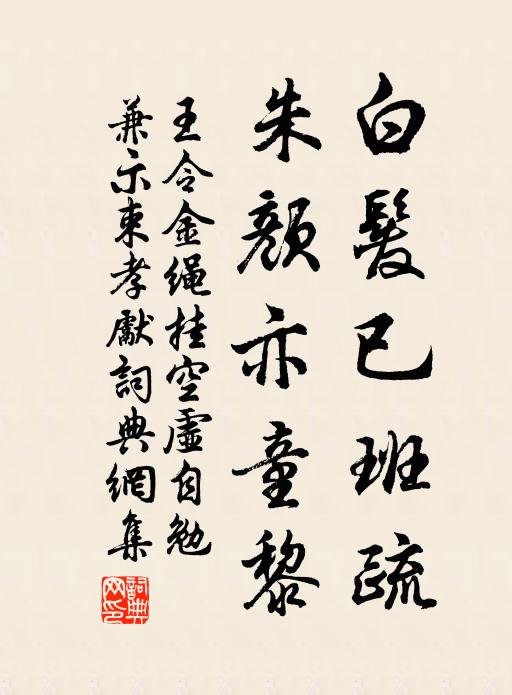 白髮已班疏
朱顏亦童黎
王令金繩挂空虛自勉
兼示束孝獻詞典網集
詞典網印